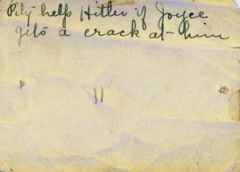 Pity help Hitler if Joyce
gits a crack at him